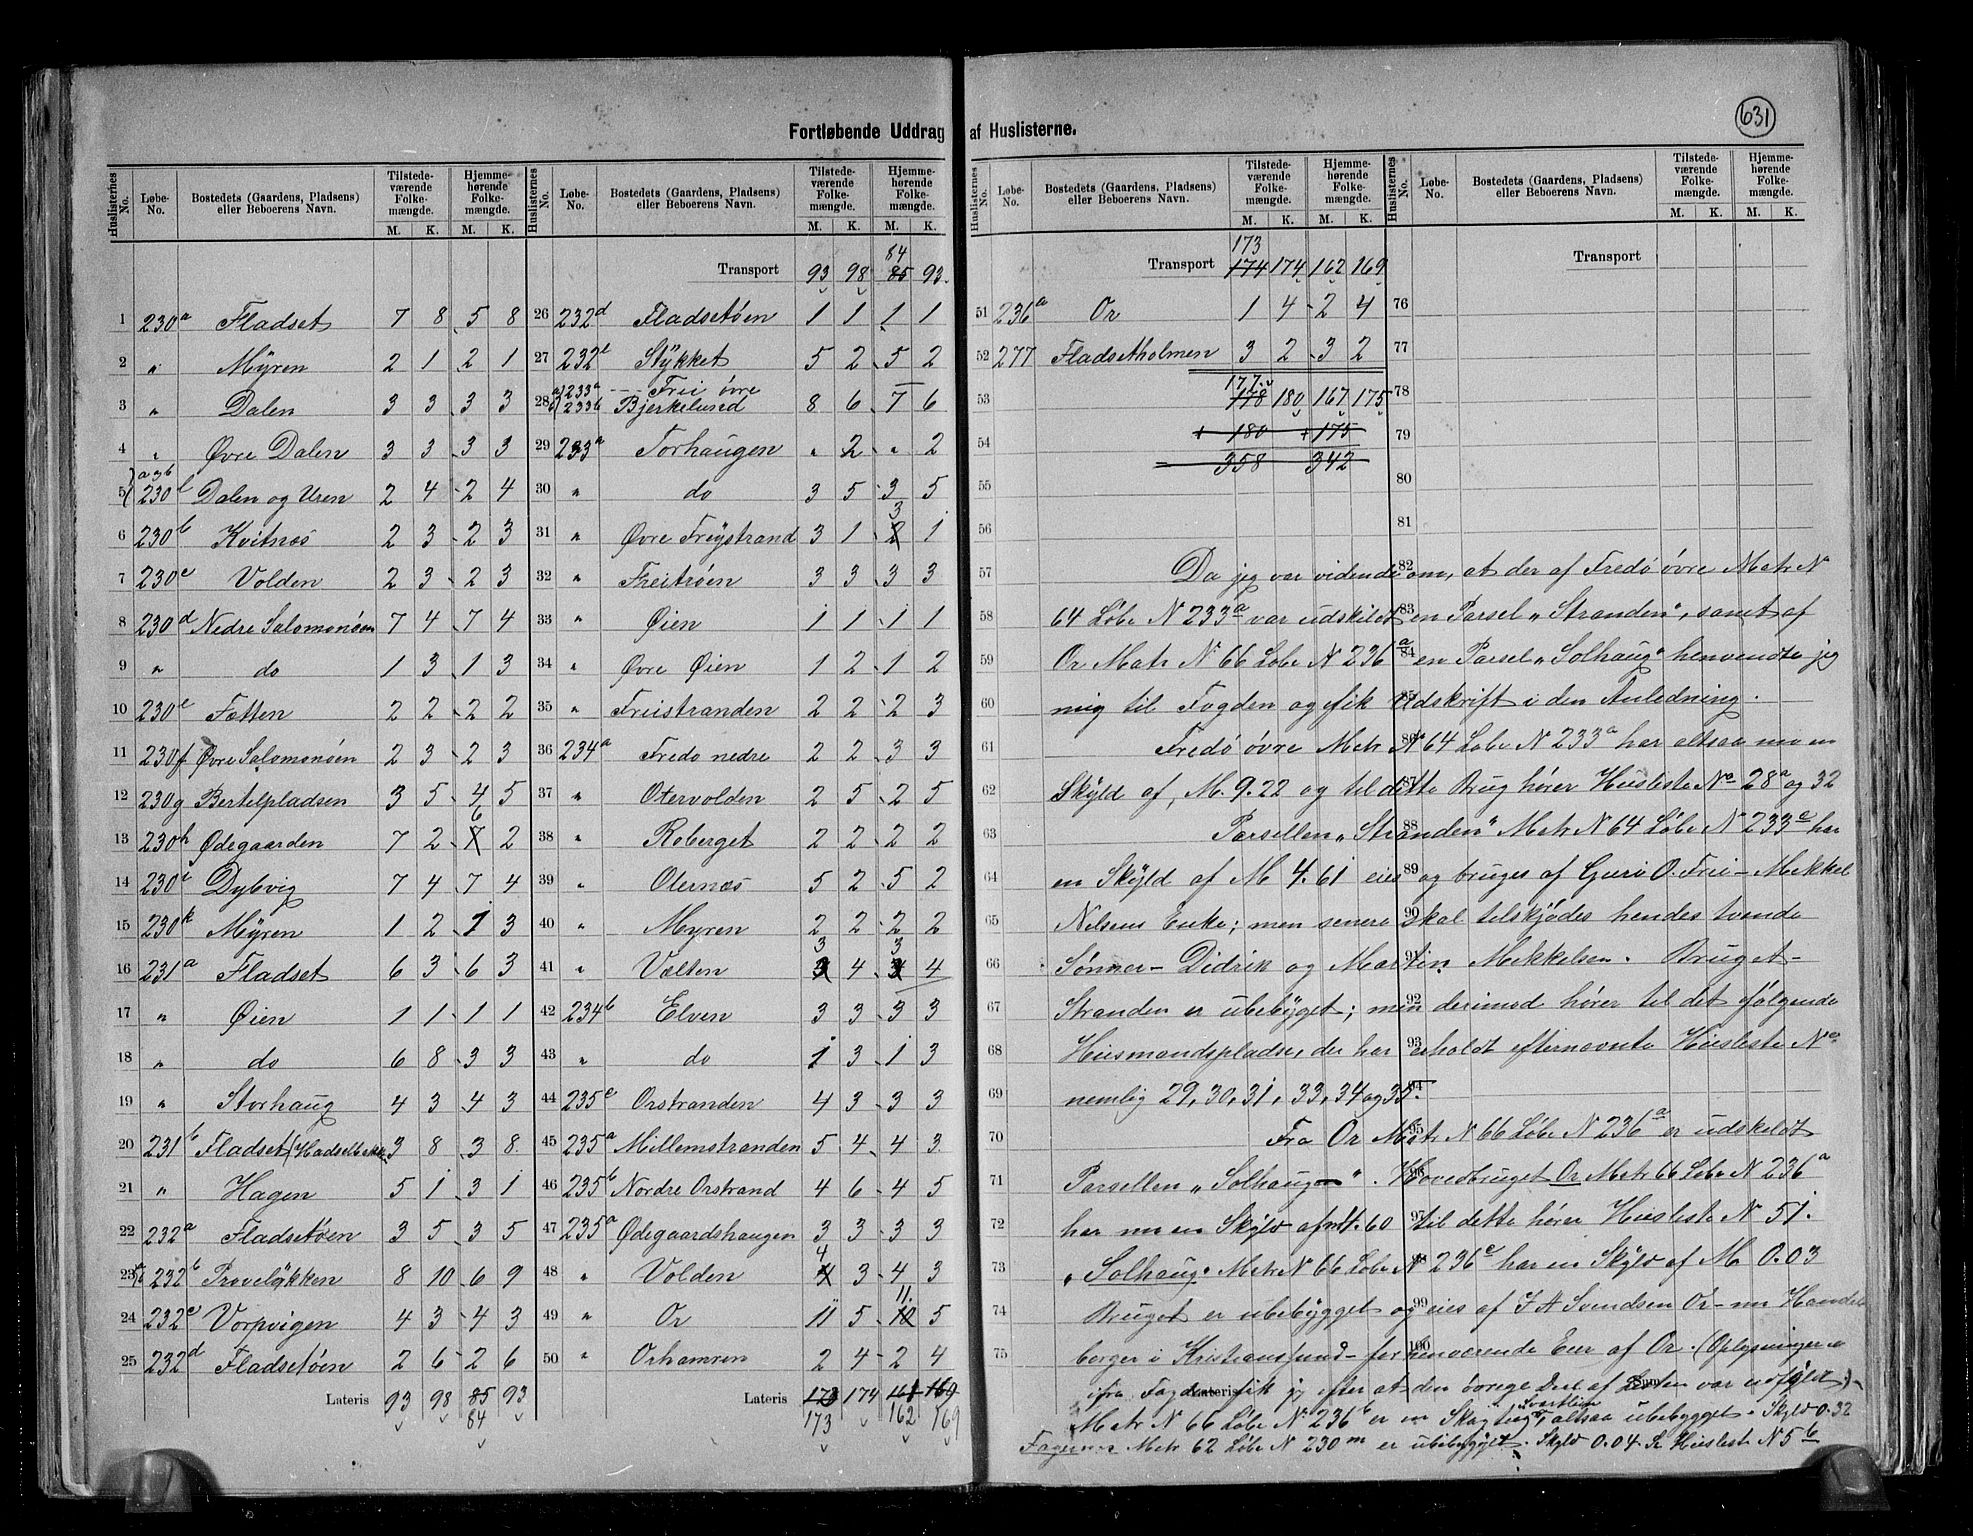 631
Fortløbende Uddrag af Huslisterne.
Huslisternes No. Løbe-No. Bostedets (Gaardens, Pladsens) eller Beboerens Navn. Tilstedeværende Folkemængde. M. K. Hjemmehørende Folkemængde. M. K.
1 230a Fladset 7 8 5 8
2 " Myren 2 1 2 1
3 " Dalen 3 3 3 3
4 " Øvre Dalen 3 3 3 3
5 a og b 230l Dalen og Uren 2 4 2 4
6 230b Kvitnæs 2 3 2 3
7 230c Volden 2 3 2 3
8 230d Nedre Salomonøen 7 4 7 4
9 " do 1 3 1 3
10 230e Fætten 2 2 2 2
11 230f Øvre Salomonøen 2 3 2 3
12 230g Bertelpladsen 3 5 4 5
13 230h Ødegaarden 7 2 7 6 2
14 230i Dybvig 7 4 7 4
15 230k Myren 1 2 1 3
16 231a Fladset 6 3 6 3
17 " Øien 1 1 1 1
18 " do 6 8 3 3
19 " Storhaug 4 3 4 3
20 231b Fladset (Hadselbakken 3 8 3 8
21 " Hagen 5 1 3 1
22 232a Fladsetøen 3 5 3 5
23 232b Prøveløkken 8 10 6 9
24 232c Vorpvigen 4 3 4 3
25 232d Fladsetøen 2 6 2 6
Lateris 93 98 85 84 93
Huslisternes No. Løbe-No. Bostedets (Gaardens, Pladsens) eller Beboerens Navn. Tilstedeværende Folkemængde. M. K. Hjemmehørende Folkemængde. M. K.
Transport 93 98 85 84 93
26 232d Fladsetøen 1 1 1 1
27 232e Stykket 5 2 5 2
28 a) 233a b) 233b Frei øvre Bjerkelund 8 6 7 6
29 233a Torhaugen " 2 " 2
30 " do 3 5 3 5
31 " Øvre Freystrand 3 1 2 3 1
32 " Freitrøen 3 3 3 3
33 " Øien 1 1 1 1
34 " Øvre Øien 1 2 1 2
35 " Freistranden 2 2 2 3
36 234a Fredø nedre 2 2 3 3
37 " Otervolden 2 5 2 5
38 " Roberget 2 2 2 2
39 " Oternæs 5 2 5 2
40 " Myren 2 2 2 2
41 " Vælten 3 4 3 4
42 234b Elven 3 3 3 3
43 " do 1 3 1 3
44 235c Orstranden 4 3 3 3
45 235a Millemstranden 5 4 4 3
46 235b Nordre Orstrand 4 6 4 5
47 235a Ødegaardshaugen 3 3 3 3
48 " Volden 4 3 4 3
49 " Or 11 5 10 11 5
50 " Orhamren 2 4 2 4
Lateris 173 174 162 169
Huslisternes No. Løbe-No. Bostedets (Gaardens, Pladsens) eller Beboerens Navn. Tilstedeværende Folkemængde. M. K. Hjemmehørende Folkemængde. M. K.
Transport 174 173 174 162 169
51 236a Or 1 4 2 4
52 277 Fladsetholmen 3 2 3 2
53 178 177 180 167 175
54 + 180 + 175
358 342
55
56
Huslisternes No. Løbe-No. Bostedets (Gaardens, Pladsens) eller Beboerens Navn. Tilstedeværende Folkemængde. M. K. Hjemmehørende Folkemængde. M. K.
Transport
76
77
78
79
80
81
57 82 Da jeg var vidende om, at der af Fredø øvre Matr N
58 83 64 Løbe N 233a var udskildt en Parsel „Stranden", samt af
59 84 Or Matr N 66 Løbe N 236a en Parsel „Solhaug" henvendte jeg
60 85 mig til Fogden og fik Udskrift i den Anledning.
61 86 Fredø øvre Matr No 64 Løbe N 233a har altsaa nu en
62 87 Skyld af, M. 9.22 og til dette Brug hører Husliste No 28a og 32
63 88 Parsellen „Stranden" Matr N 64 Løbe N 233c har
64 89 en Skyld af M 4.61 eies og bruges af Guri O. Frei - Mekkel
65 90 Nilsens Enke; men senere skal tilskjødes hendes tvende
66 91 Sønner - Didrik og Martin Mekkelsen. Bruget -
67 92 Stranden er ubebygget; men derimod hører til det følgende
68 93 Husmandspladse, der har erholdt efternævnte Husliste No
69 94 nemlig 29, 30, 31, 33, 34 og 35.
70 95 Fra Or Matr N 66 Løbe N 236a er udskildt
71 96 Parsellen „Solhaug". Hovedbruget Or Matr 66 Løbe N 236a
72 97 har nu en Skyld af .60 til dette hører Husliste N 51.
73 98 „Solhaug" Matr N 66 Løbe N 236c har en Skyld af M 0.03
74 99 Bruget er ubebygget og eies af J A Svendsen Or - nu Handels
75 100 berger i Kristiansund - forhenværende Eier af Or. (Oplysninger
Lateris Sum
ifra Fogden fik jeg efter at den øvrige Deel af Listen var udfyldt.)
Matr N 66 Løbe N 236b er en Skogteig, Svartlien altsaa ubebygget. Skyld 0.32
Fagernæs Matr 62 Løbe N 230m er ubebygget. Skyld 0.04 Se Husliste N 5b